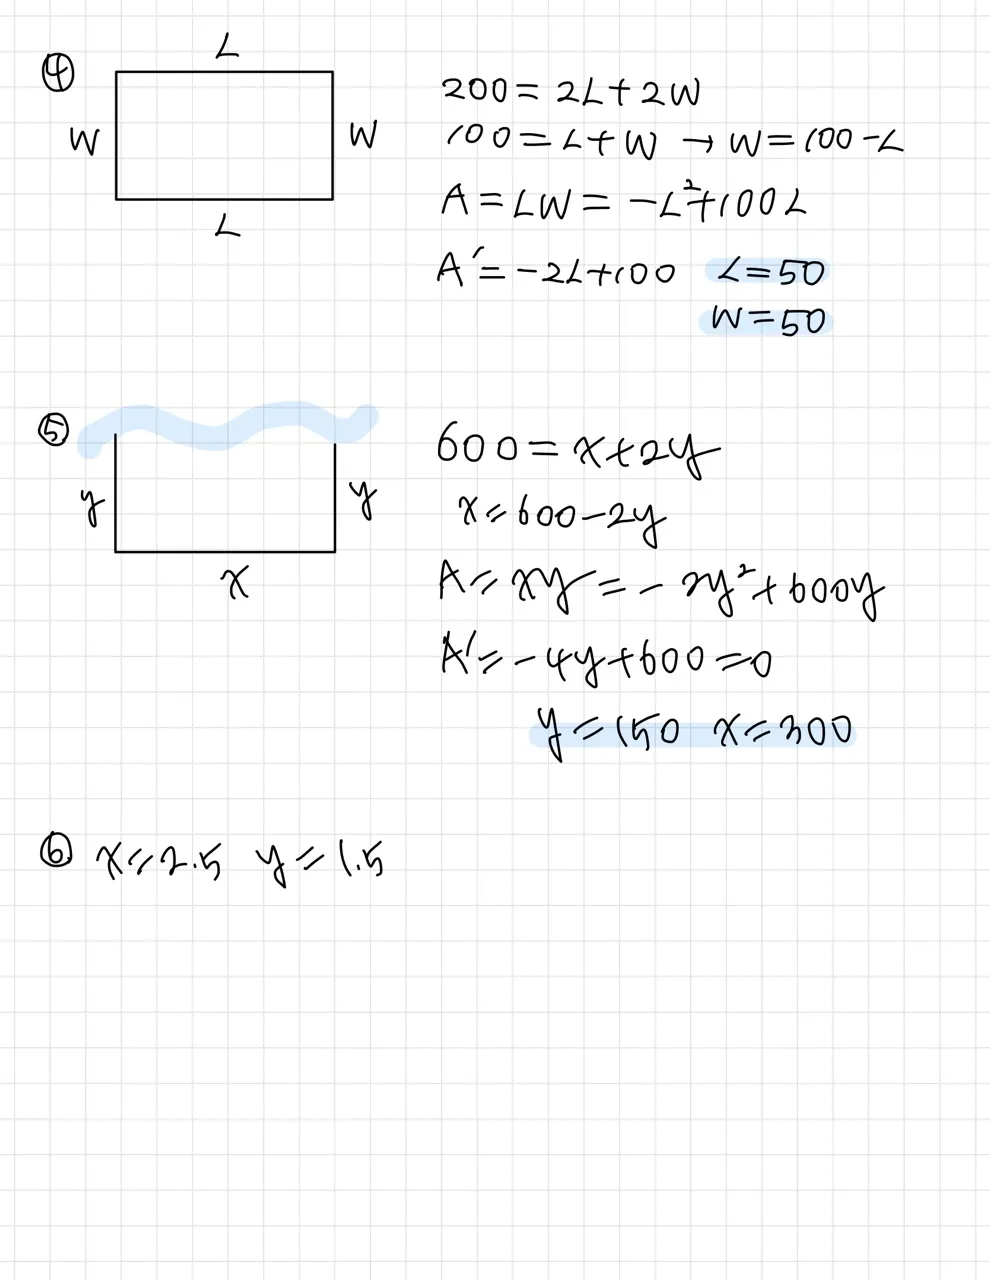 ④
L
W
W
L
200 = 2L + 2W
100 = L + W → W = 100 - L
A = LW = -L² + 100L
A' = -2L + 100 L = 50
W = 50
⑤
y
y
x
600 = x + 2y
x = 600 - 2y
A = xy = - 2y² + 600y
A' = -4y + 600 = 0
y = 150 x = 300
⑥ x = 2.5 y = 1.5